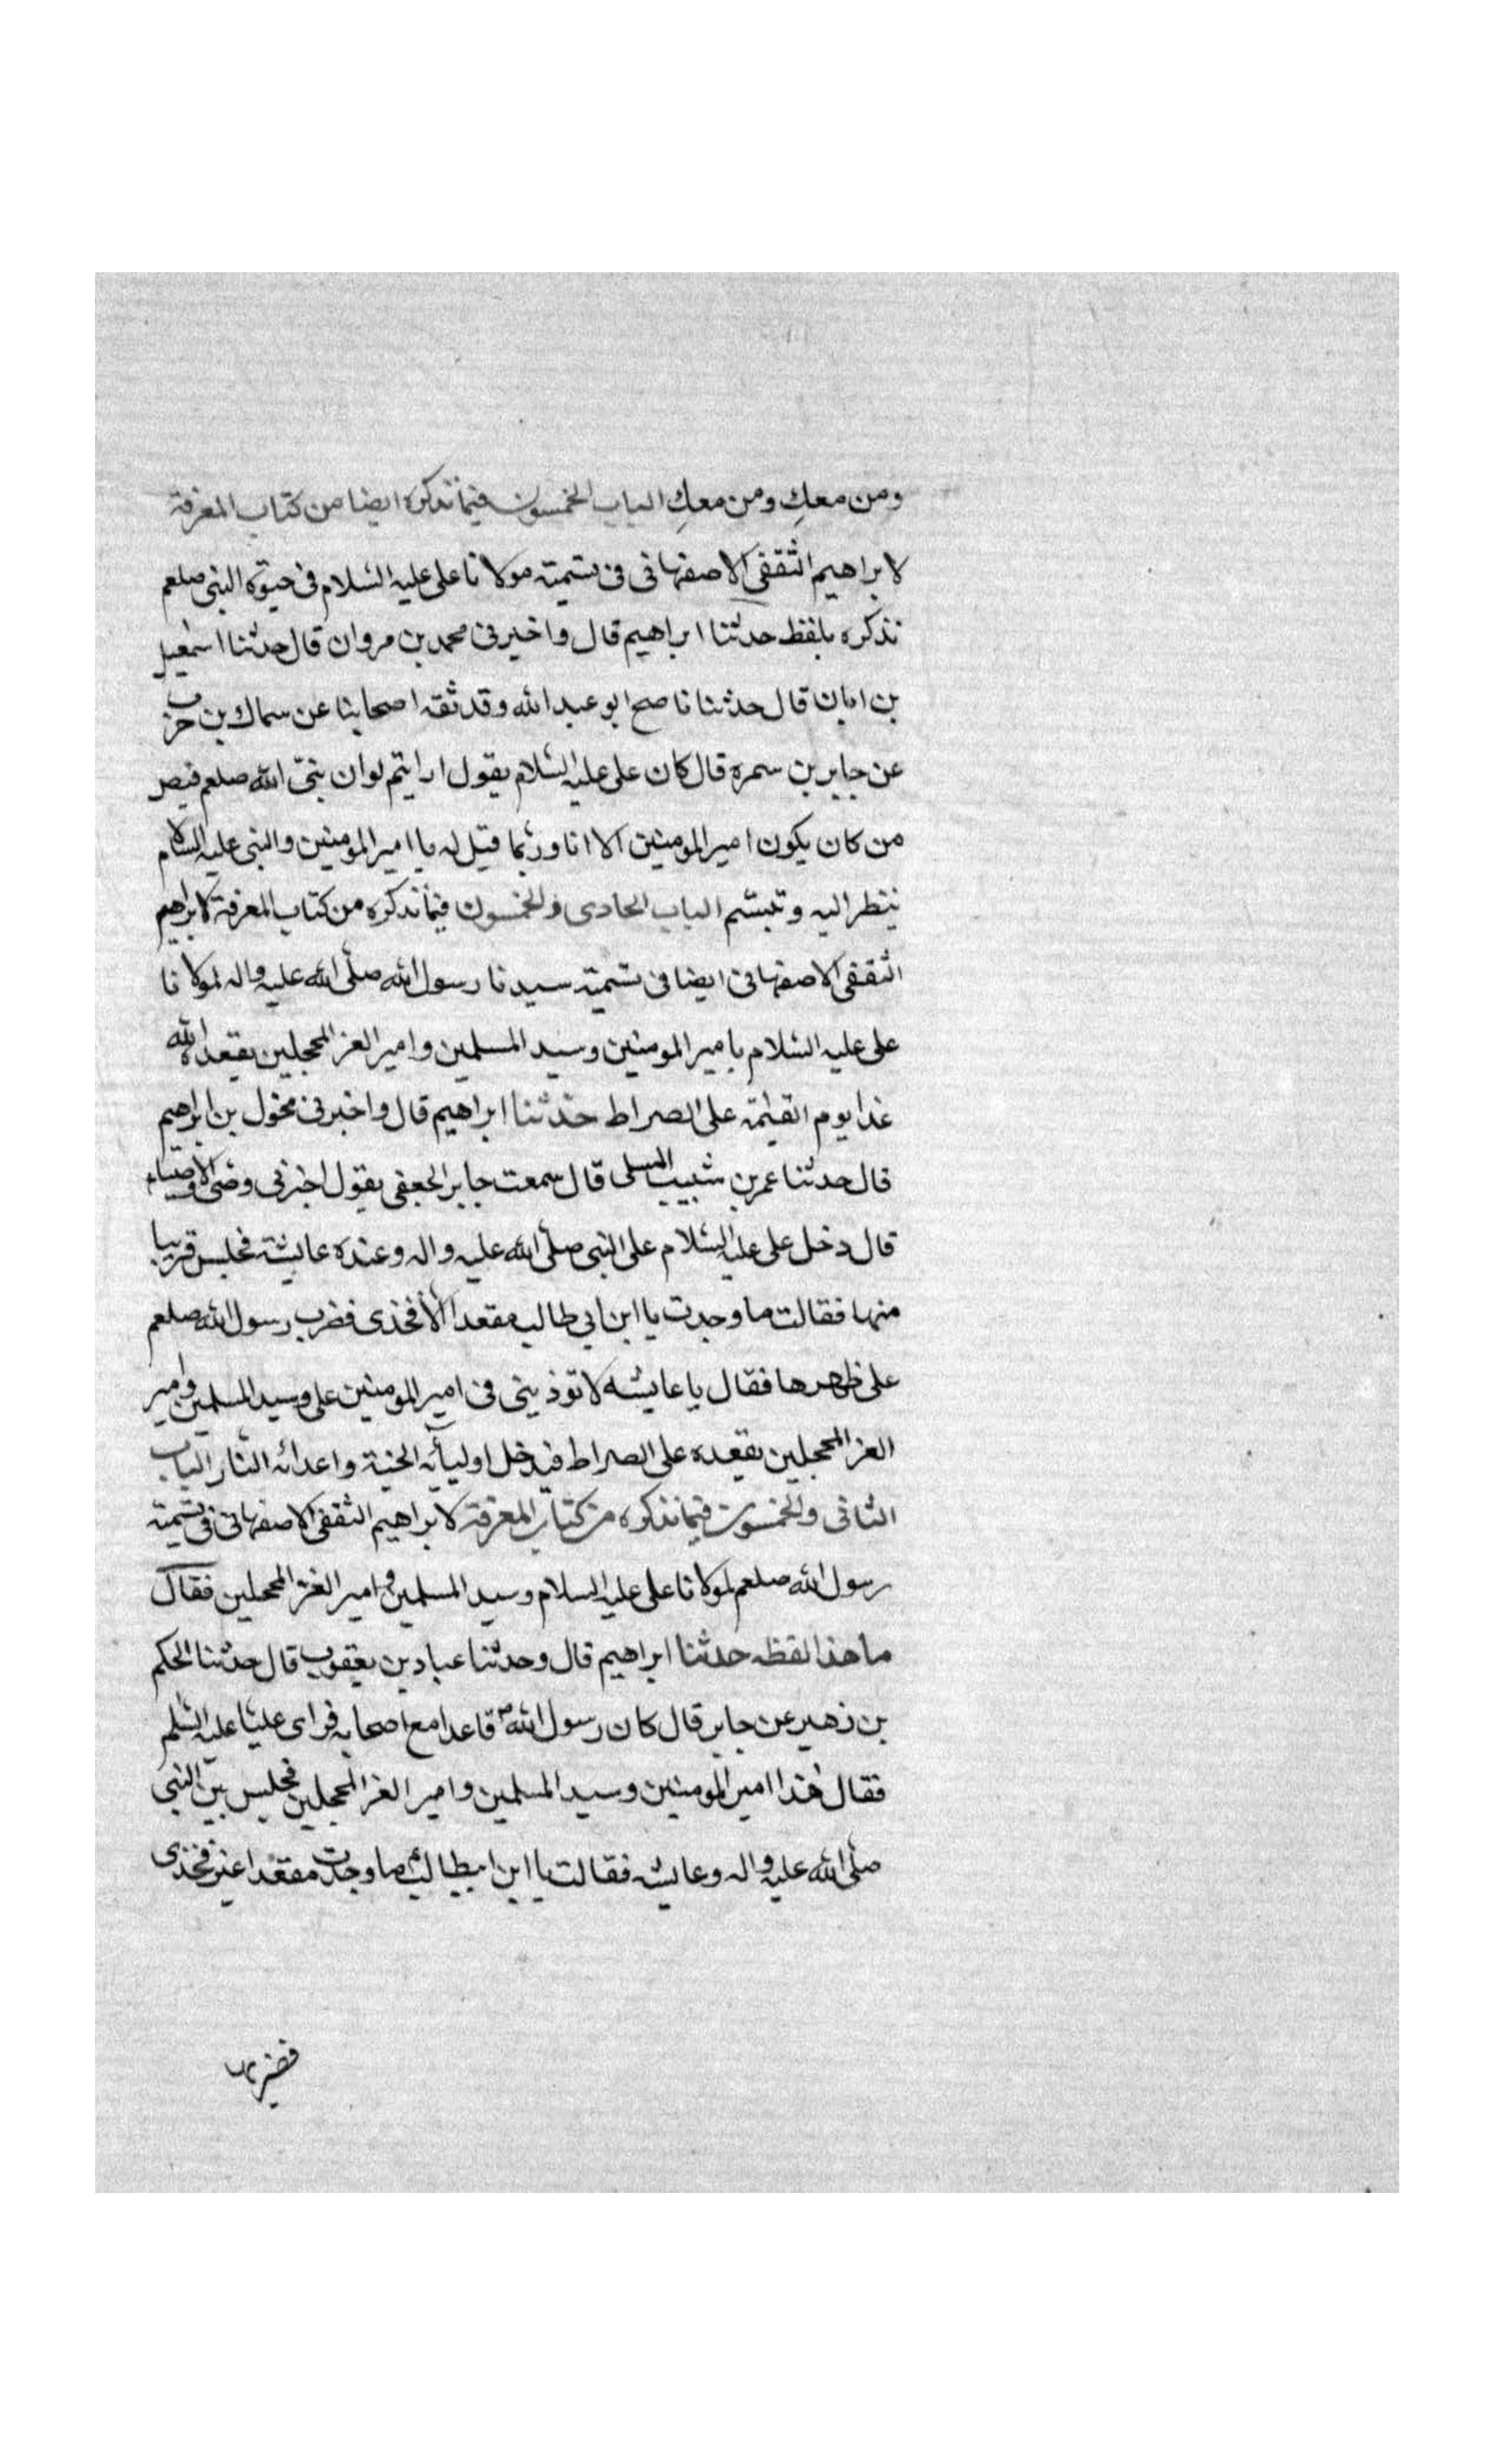 ومن معك ومن معك الباب الخمسون فيما نذكره ايضا من كتاب المعرفة
لابراهيم الثقفى الاصفهانى فى تسمية مولانا على عليه السلام فى حيوة النبى صلعم
نذكره بلفظ حدثنا ابراهيم قال واخبرنى محمد بن مروان قال حدثنا اسمعيل
بن ابان قال حدثنا ناصح ابو عبد الله وقد ثقه اصحابنا عن سماك بن حرب
عن جابر بن سمره قال كان على عليه السلام يقول ارايتم لو ان نبى الله صلعم قبض
من كان يكون امير المومنين الا انا وربما قيل له يا امير المومنين والنبى عليه السلام
ينظر اليه وتبسم الباب الحادى والخمسون فيما نذكره من كتاب المعرفة لابراهيم
الثقفى الاصفهانى ايضا فى تسمية سيدنا رسول الله صلى الله عليه واله لمولانا
على عليه السلام بامير المومنين وسيد المسلمين وامير الغر المحجلين يقعده الله
غدا يوم القيمة على الصراط حدثنا ابراهيم قال واخبرنى مخول بن ابراهيم
قال حدثنا عمر بن شبيب المسلى قال سمعت جابر الجعفى يقول اخبرنى وصى الاوصياء
قال دخل على عليه السلام على النبى صلى الله عليه واله وعنده عايشة فجلس قريبا
منها فقالت ما وجدت يا ابن ابى طالب مقعدا الا فخذى فضرب رسول الله صلعم
على ظهرها فقال يا عايشه لا توذينى فى امير المومنين على وسيد المسلمين وامير
الغر المحجلين يقعده على الصراط فيدخل اوليآئه الجنة واعدائه النار الباب
الثانى والخمسون فيما نذكره من كتاب المعرفة لابراهيم الثقفى الاصفهانى فى تسمية
رسول الله صلعم لمولانا على عليه السلام وسيد المسلمين وامير الغر المحجلين فقال
ما هذا لفظه حدثنا ابراهيم قال وحدثنا عباد بن يعقوب قال حدثنا الحكم
بن زهير عن جابر قال كان رسول الله ص قاعدا مع اصحابه فراى عليا عليه السلم
فقال هذا امير المومنين وسيد المسلمين وامير الغر المحجلين فجلس بين النبى
صلى الله عليه واله وعايشه فقالت يا ابن ابيطالب ما وجدت مقعدا غير فخذى
فضربها